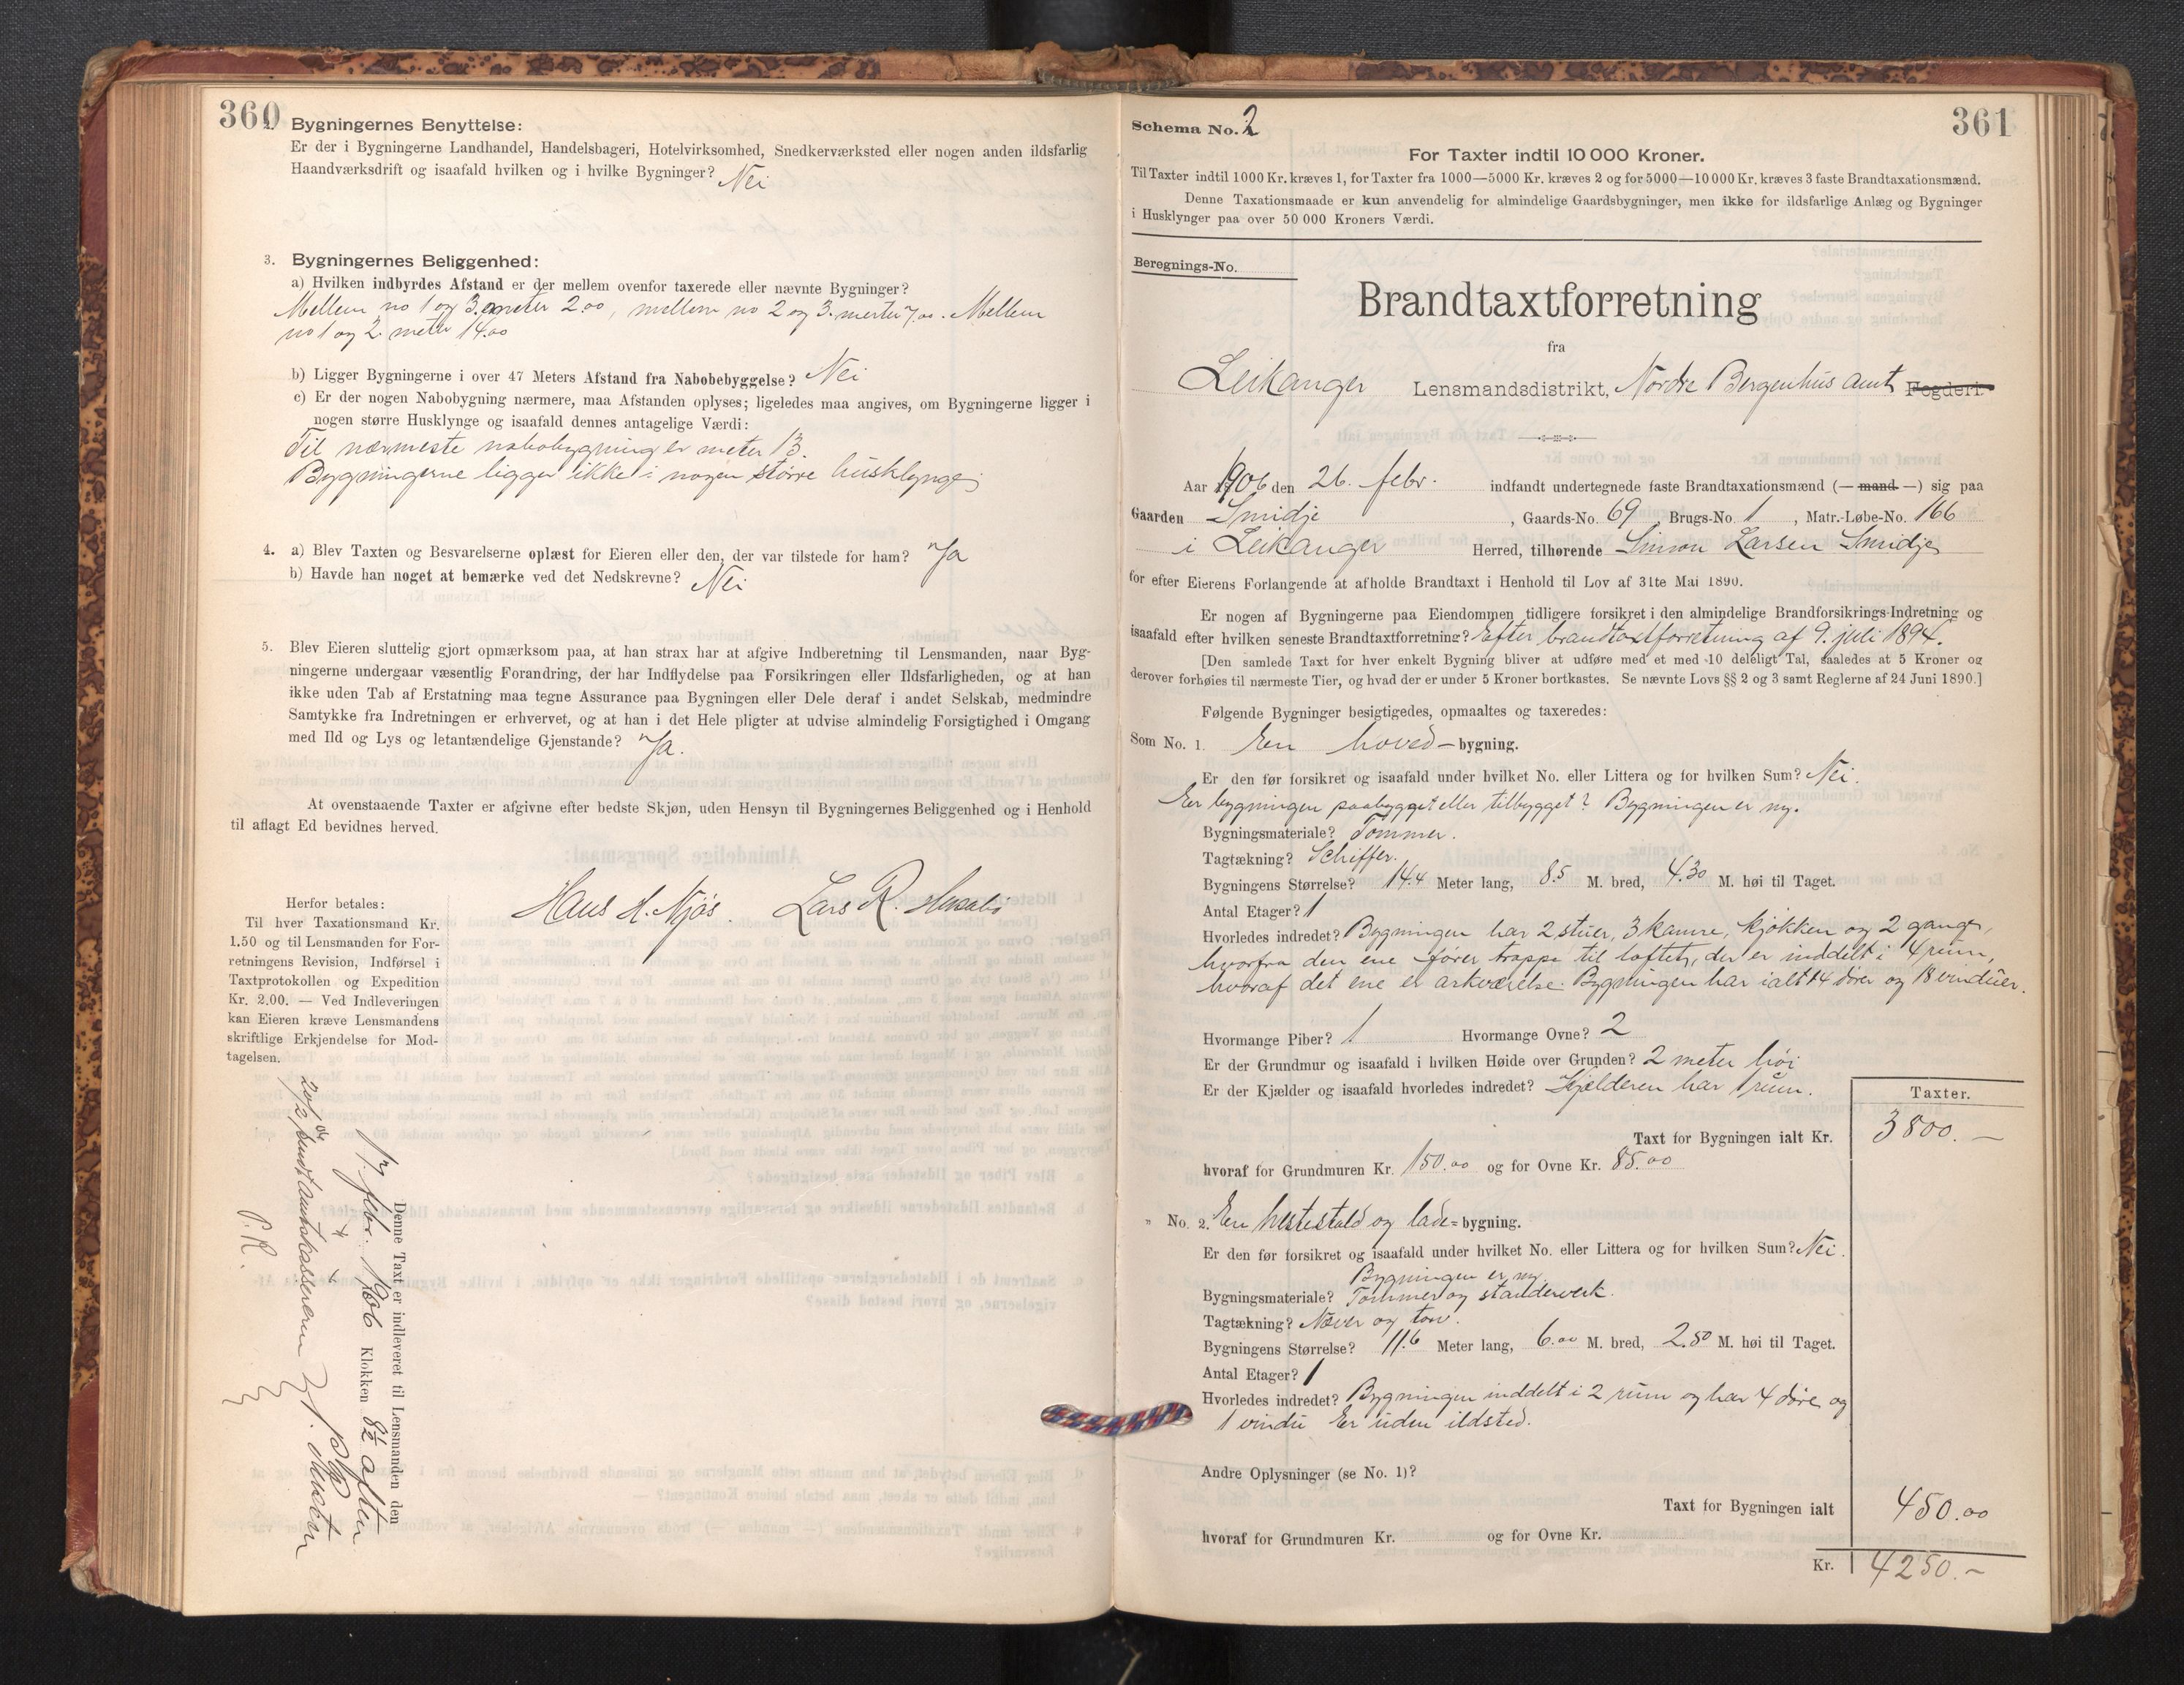 360
2. Bygningernes Benyttelse:
Er der i Bygningerne Landhandel, Handelsbageri, Hotelvirksomhed, Snedkerværksted eller nogen anden ildsfarlig
Haandværksdrift og isaafald hvilken og i hvilke Bygninger? Nei
3. Bygningernes Beliggenhed:
a) Hvilken indbyrdes Afstand er der mellem ovenfor taxerede eller nævnte Bygninger?
Mellem no 1 og 3. meter 2.00, mellem no 2 og 3. meter 7.00. Mellem
no 1 og 2 meter 14.00
b) Ligger Bygningerne i over 47 Meters Afstand fra Nabobebyggelse? Nei
c) Er der nogen Nabobygning nærmere, maa Afstanden oplyses; ligeledes maa angives, om Bygningerne ligger i
nogen større Husklynge og isaafald dennes antagelige Værdi:
Til nærmeste nabobygning er meter 13.
Bygningerne ligger ikke i nogen større husklynge
4. a) Blev Taxten og Besvarelserne oplæst for Eieren eller den, der var tilstede for ham? Ja
b) Havde han noget at bemærke ved det Nedskrevne? Nei
5. Blev Eieren sluttelig gjort opmærksom paa, at han strax har at afgive Indberetning til Lensmanden, naar Byg-
ningerne undergaar væsentlig Forandring, der har Indflydelse paa Forsikringen eller Ildsfarligheden, og at han
ikke uden Tab af Erstatning maa tegne Assurance paa Bygningen eller Dele deraf i andet Selskab, medmindre
Samtykke fra Indretningen er erhvervet, og at han i det Hele pligter at udvise almindelig Forsigtighed i Omgang
med Ild og Lys og letantændelige Gjenstande? Ja.
At ovenstaaende Taxter er afgivne efter bedste Skjøn, uden Hensyn til Bygningernes Beliggenhed og i Henhold
til aflagt Ed bevidnes herved.
Hans H. Njøs. Lars R.
Herfor betales:
Til hver Taxationsmand Kr.
1.50 og til Lensmanden for For-
retningens Revision, Indførsel i
Taxtprotokollen og Expedition
Kr. 2.00. — Ved Indleveringen
kan Eieren kræve Lensmandens
skriftlige Erkjendelse for Mod-
tagelsen.
Denne Taxt er indleveret til Lensmanden den
febr. 1906 Klokken 8½ aften
Amtskassereren
P. R.
361
Schema No. 2
For Taxter indtil 10 000 Kroner.
Til Taxter indtil 1000 Kr. kræves 1, for Taxter fra 1000—5000 Kr. kræves 2 og for 5000—10 000 Kr. kræves 3 faste Brandtaxationsmænd.
Denne Taxationsmaade er kun anvendelig for almindelige Gaardsbygninger, men ikke for ildsfarlige Anlæg og Bygninger
i Husklynger paa over 50 000 Kroners Værdi.
Beregnings-No.
Brandtaxtforretning
fra
Leikanger Lensmandsdistrikt, Nordre Bergenhus amt Fogderi
Aar 1906 den 26. febr. indfandt undertegnede faste Brandtaxationsmænd (— mand —) sig paa
Gaarden Smidje, Gaards-No. 69, Brugs-No. 1, Matr.-Løbe-No. 166
i Leikanger Herred, tilhørende Simon Larsen Smidje
for efter Eierens Forlangende at afholde Brandtaxt i Henhold til Lov af 31te Mai 1890.
Er nogen af Bygningerne paa Eiendommen tidligere forsikret i den almindelige Brandforsikrings-Indretning og
isaafald efter hvilken seneste Brandtaxtforretning? Efter brandtaxtforretning af 9. juli 1894.
[Den samlede Taxt for hver enkelt Bygning bliver at udføre med et med 10 deleligt Tal, saaledes at 5 Kroner og
derover forhøies til nærmeste Tier, og hvad der er under 5 Kroner bortkastes. Se nævnte Lovs §§ 2 og 3 samt Reglerne af 24 Juni 1890.]
Følgende Bygninger besigtigedes, opmaaltes og taxeredes:
Som No. 1. En hoved-bygning.
Er den før forsikret og isaafald under hvilket No. eller Littera og for hvilken Sum? Nei.
Er bygningen paabygget eller tilbygget? Bygningen er ny.
Bygningsmateriale? Tømmer.
Tagtækning? Schiffer.
Bygningens Størrelse? 14.4 Meter lang, 8.5 M. bred, 4.30 M. høi til Taget.
Antal Etager? 1
Hvorledes indredet? Bygningen har 2 stuer, 3 kamre, kjøkken og 2 gange,
hvorfra den ene fører trappe til loftet, der er inddelt i 4 rum,
hvoraf det ene er arkværelse. Bygningen har ialt 14 dører og 18 vinduer.
Hvormange Piber? 1 Hvormange Ovne? 2
Er der Grundmur og isaafald i hvilken Høide over Grunden? 2 meter høi
Er der Kjælder og isaafald hvorledes indredet? Kjælderen har 1 rum.
Taxter.
Taxt for Bygningen ialt Kr. 3800.—
hvoraf for Grundmuren Kr. 150.00 og for Ovne Kr. 85.00
" No. 2. En hestestald og lade-bygning.
Er den før forsikret og isaafald under hvilket No. eller Littera og for hvilken Sum? Nei.
Bygningen er ny
Bygningsmateriale? Tømmer og standerverk.
Tagtækning? Næver og torv.
Bygningens Størrelse? 11.6 Meter lang, 6.00 M. bred, 2.80 M. høi til Taget.
Antal Etager? 1
Hvorledes indredet? Bygningen inddelt i 2 rum og har 4 døre og
1 vindu Er uden ildsted.
Andre Oplysninger (se No. 1)?
Taxt for Bygningen ialt 450.00
hvoraf for Grundmuren Kr. og for Ovne Kr.
Kr. 4250.—